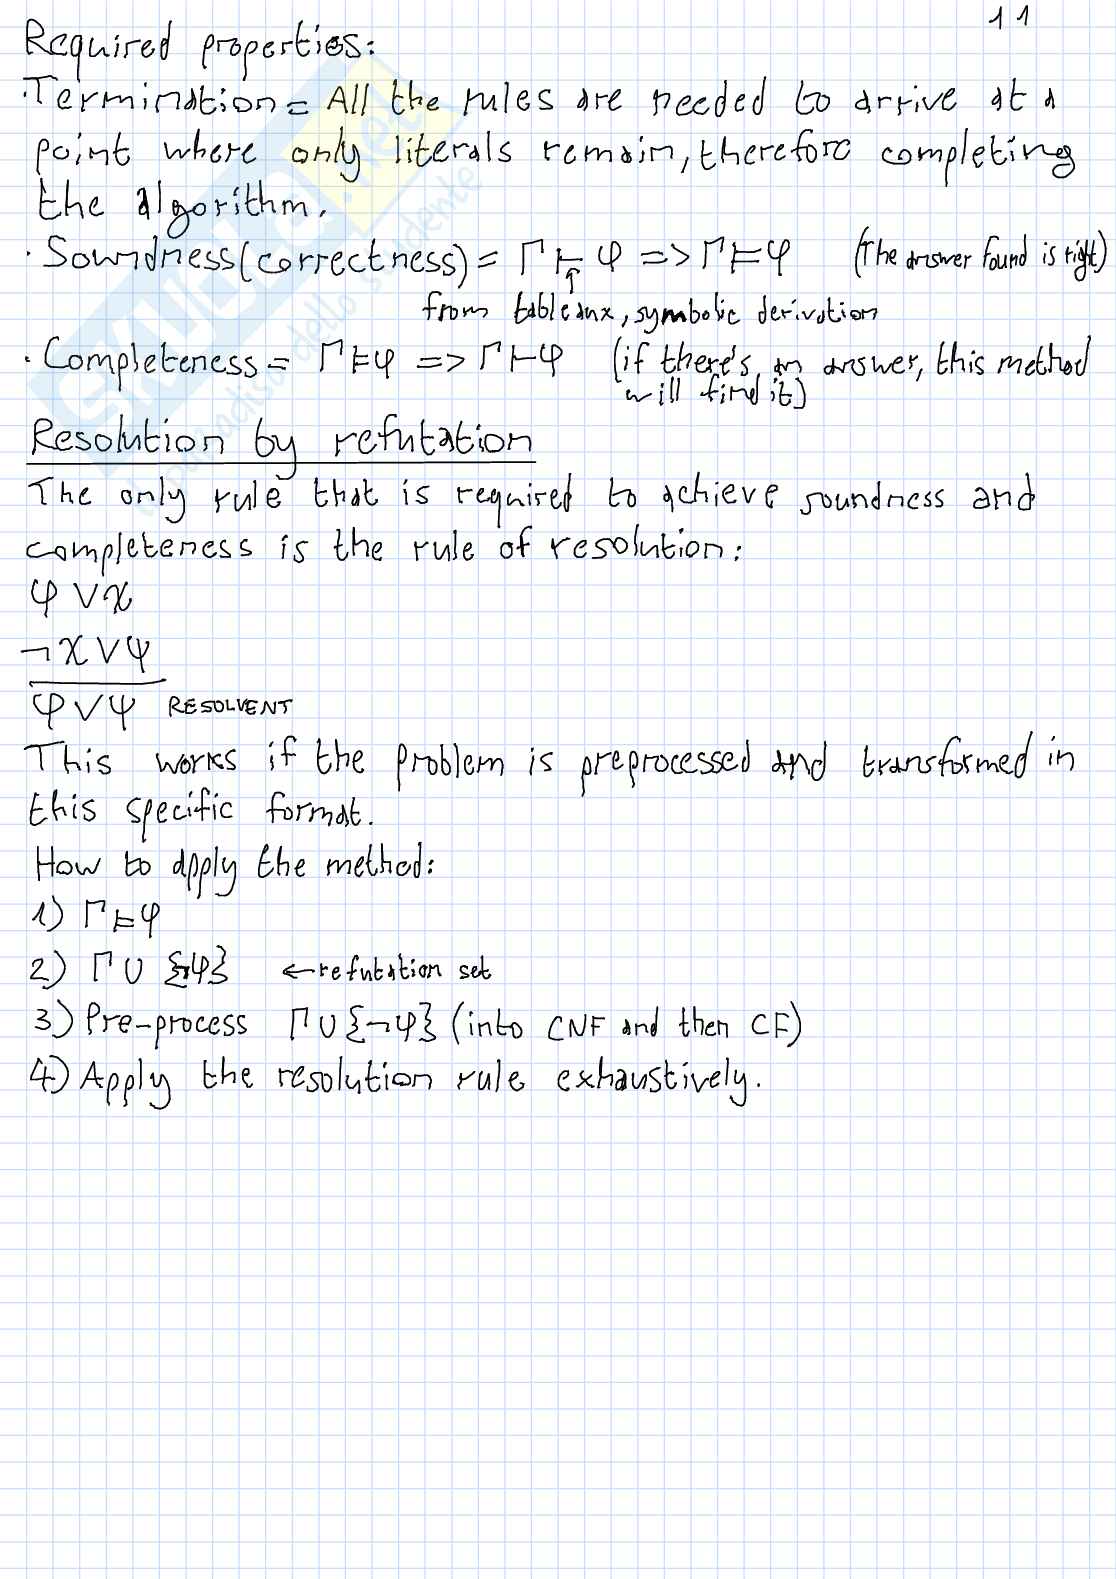 11
Required properties:
·Termination = All the rules are needed to arrive at a
point where only literals remain, therefore completing
the algorithm.
· Soundness (correctness) = Γ ⊢ φ => Γ ⊨ φ (The answer found is right)
↑
from tableaux, symbolic derivation
· Completeness = Γ ⊨ φ => Γ ⊢ φ (if there's an answer, this method
will find it)
Resolution by refutation
The only rule that is required to achieve soundness and
completeness is the rule of resolution:
φ ∨ χ
¬χ ∨ ψ
φ ∨ ψ RESOLVENT
This works if the problem is preprocessed and transformed in
this specific format.
How to apply the method:
1) Γ ⊨ φ
2) Γ ∪ {¬φ} ← refutation set
3) Pre-process Γ ∪ {¬φ} (into CNF and then CF)
4) Apply the resolution rule exhaustively.
SKUOLA.net
il paradiso dello studente